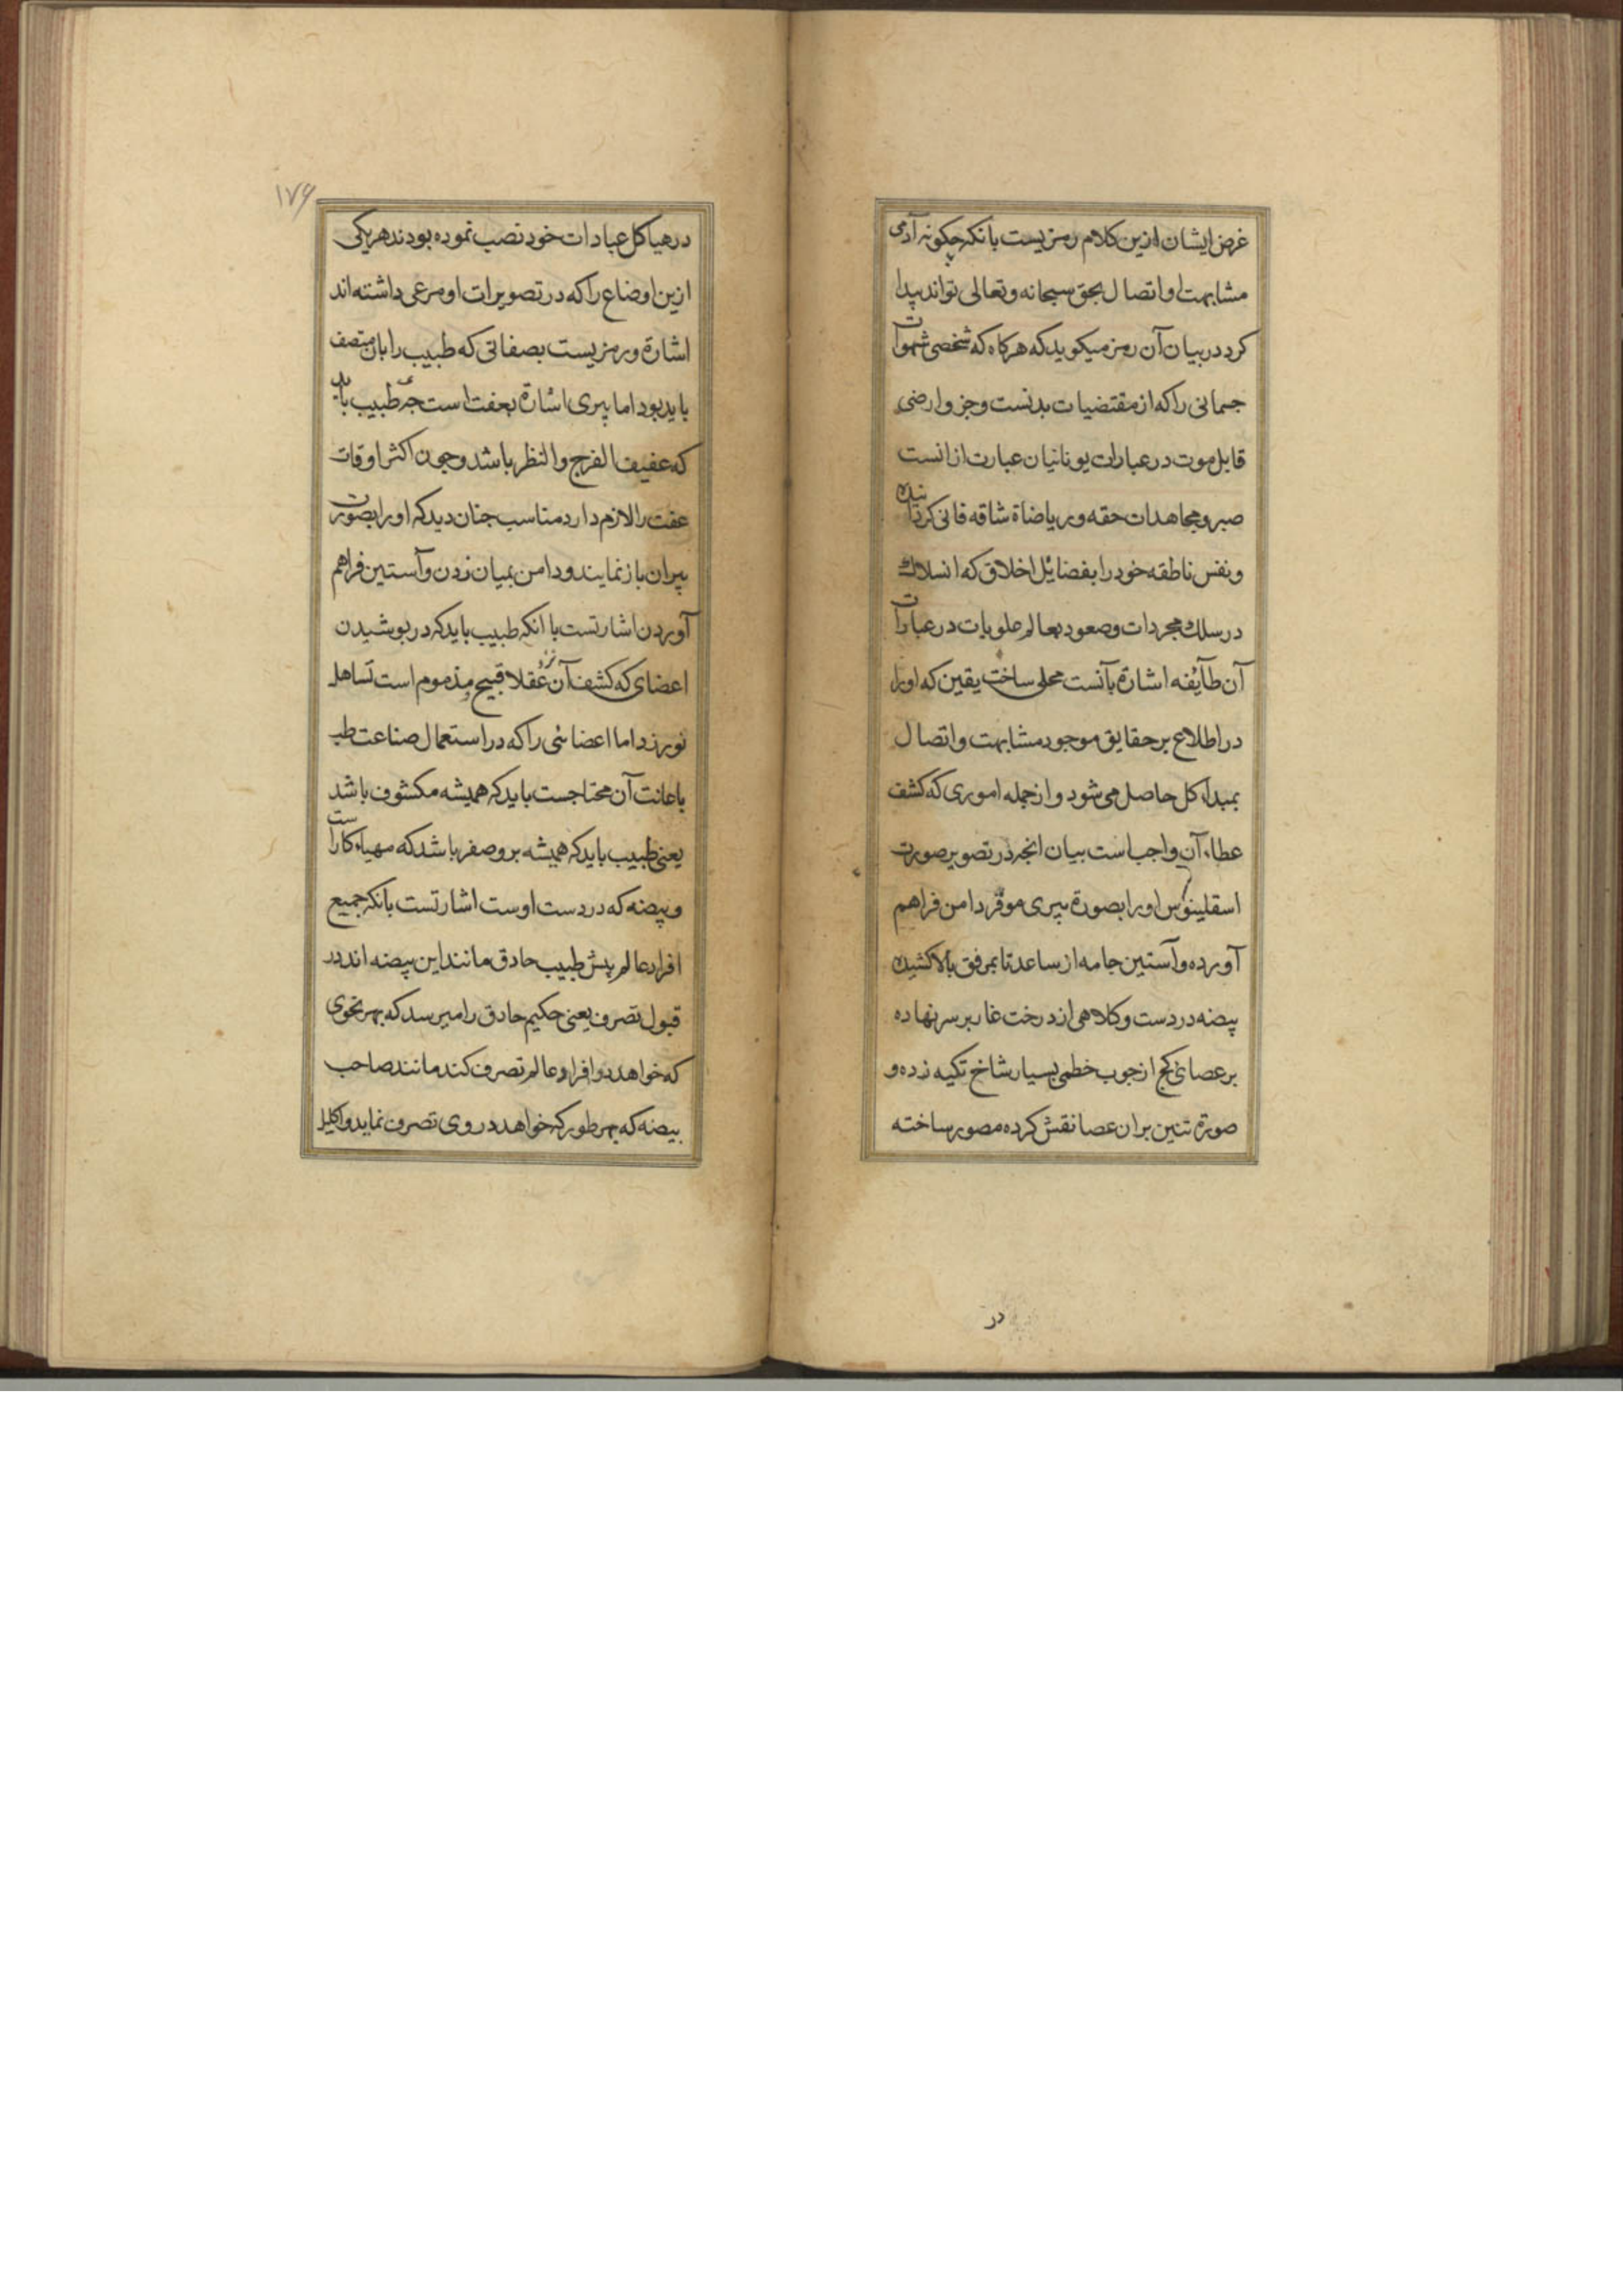 غرض ایشان ازین کلام رمزیست بانکه چکونه آدمی
مشابهت و اتصال بحق سبحانه و تعالی تواند پیدا
کرد در بیان آن رمز میکوید که هرکاه که شخصی شهوات
جسمانی را که از مقتضیات بدنست و جزو ارضی
قابل موت در عبارات یونانیان عبارت ازانست
صبر و مجاهدات حقه و ریاضاة شاقه فانی کردانیده
و نفس ناطقه خود را بفضایل اخلاق که انسلاک
در سلک مجردات و صعود بعالم علویات در عبارات
آن طآیفه اشارة بآنست محلی ساخت یقین که اورا
در اطلاع بر حقایق موجود مشابهت و اتصال
بمبداء کل حاصل می شود و از جمله اموری که کشف
عطاء آن واجب است بیان انچه در تصویر صورت
اسقلینوس اورا بصورة پیری موقر دامن فراهم
آورده و آستین جامه از ساعد تا بمرفق بالا کشیده
بیضه در دست و کلاهی از درخت غار بر سر نهاده
بر عصای کج از جوب خطمی بسیار شاخ تکیه زده و
صورة تنین بران عصا نقش کرده مصور ساخته
در
۱۷۶
در هیاکل عبادات خود نصب نموده بودند هر یکی
ازین اوضاع را که در تصویرات او مرعی داشته اند
اشارة و رمزیست بصفاتی که طبیب را بان متصف
باید بود اما پیری اشارة بعفت است چه طبیب باید
که عفیف الفرج و النظر باشد و چون اکثر اوقات
عفت را لازم دارد مناسب جنان دیدکه اورا بصورت
پیران باز نمایند و دامن بمیان زدن و آستین فراهم
آوردن اشارتست با انکه طبیب باید که در بوشیدن
اعضای که کشف آن نزد عقلا قبیح و مذموم است تساهل
نورزد اما اعضائی را که در استعمال صناعت طب
باعانت آن محتاجست باید که همیشه مکشوف باشد
یعنی طبیب باید که همیشه بر وصفر باشد که مهیاء کاراست
و بیضه که در دست اوست اشارتست بانکه جمیع
افراد عالم پیش طبیب حاذق مانند این بیضه اند در
قبول تصرف یعنی حکیم حاذق را میرسد که بهر نحوی
که خواهد در افراد عالم تصرف کند مانند صاحب
بیضه که بهر طور که خواهد در وی تصرف نماید و اکلیل